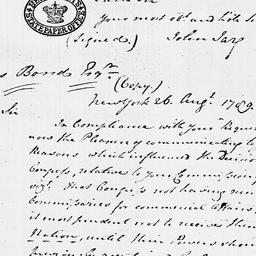 Your most obt. and hble S
(Signed) John Jay
s Bond Esqr.
(Copy)
New York 26 Augt. 1789.
Sir
In Compliance with your Reque
now the Pleasure of communicating to
Reasons which influenced the Decision
Congress, relative to your Commission
vizt. That Congress not having
Commissaries for commercial Affairs,
is most prudent not to receive them
Nation, until their Powers shou